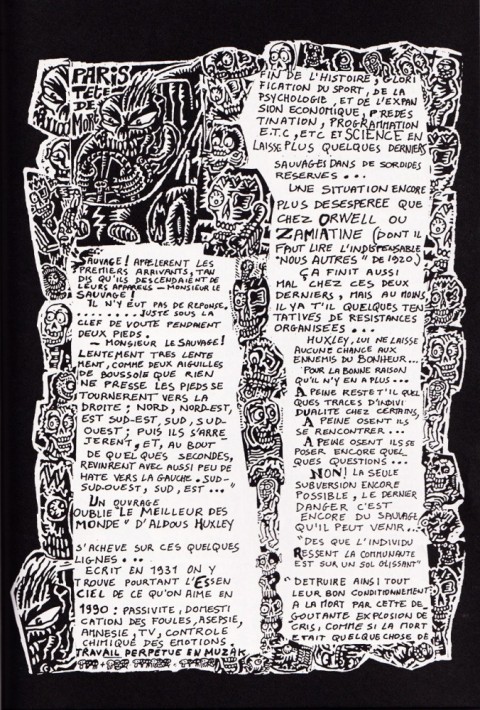 PARIS
TETE
DE
MORT
SAUVAGE! APPELERENT LES
PREMIERS ARRIVANTS, TAN
DIS QU'ILS DESCENDAIENT DE
LEURS APPAREILS - MONSIEUR LE
SAUVAGE!
IL N'Y EUT PAS DE REPONSE.
........ JUSTE SOUS LA
CLEF DE VOUTE PENDAIENT
DEUX PIEDS.
- MONSIEUR LE SAUVAGE!
LENTEMENT TRES LENTE
MENT, COMME DEUX AIGUILLES
DE BOUSSOLE QUE RIEN
NE PRESSE LES PIEDS SE
TOURNERENT VERS LA
DROITE; NORD, NORD-EST,
EST SUD-EST, SUD, SUD-
OUEST; PUIS ILS S'ARRE
TERENT, ET, AU BOUT
DE QUELQUES SECONDES,
REVINRENT AVEC AUSSI PEU DE
HATE VERS LA GAUCHE. SUD-
SUD-OUEST, SUD, EST ... "
UN OUVRAGE
OUBLIE "LE MEILLEUR DES
MONDE" D'ALDOUS HUXLEY
S'ACHEVE SUR CES QUELQUES
LIGNES ...
ECRIT EN 1931 ON Y
TROUVE POURTANT L'ESSEN
CIEL DE CE QU'ON AIME EN
1990 : PASSIVITE, DOMESTI
CATION DES FOULES, ASEPSIE,
AMNESIE, TV, CONTROLE
CHIMIQUE DES EMOTIONS.
TRAVAIL PERPETUE EN MUZAK
FIN DE L'HISTOIRE, GLORI
FICATION DU SPORT, DE LA
PSYCHOLOGIE, ET DE L'EXPAN
SION ECONOMIQUE, PREDES
TINATION, PROGRAMMATION
E.T.C, ETC ET SCIENCE EN
LAISSE PLUS QUELQUES DERNIERS
SAUVAGES DANS DE SORDIDES
RESERVES ...
UNE SITUATION ENCORE
PLUS DESESPEREE QUE
CHEZ ORWELL OU
ZAMIATINE (DONT IL
FAUT LIRE L'INDISPENSABLE
"NOUS AUTRES" DE 1920.)
ÇA FINIT AUSSI
MAL CHEZ CES DEUX
DERNIERS, MAIS AU MOINS,
IL YA T'IL QUELQUES TEN
TATIVES DE RESISTANCES
ORGANISEES ...
HUXLEY, LUI NE LAISSE
AUCUNE CHANCE AUX
ENNEMIS DU BONHEUR...
POUR LA BONNE RAISON
QU'IL N'Y EN A PLUS ...
A PEINE RESTE T'IL QUEL
QUES TRACES D'INDIVI
DUALITE CHEZ CERTAINS,
A PEINE OSENT ILS
SE RENCONTRER ...
A PEINE OSENT ILS SE
POSER ENCORE QUEL
QUES QUESTIONS ...
NON! LA SEULE
SUBVERSION ENCORE
POSSIBLE, LE DERNIER
DANGER C'EST
ENCORE DU SAUVAGE
QU'IL PEUT VENIR...
"DES QUE L'INDIVIDU
RESSENT LA COMMUNAUTE
EST SUR UN SOL GLISSANT"
"DETRUIRE AINSI TOUT
LEUR BON CONDITIONNEMENT
A LA MORT PAR CETTE DE_
GOUTANTE EXPLOSION DE
CRIS, COMME SI LA MORT
ETAIT QUELQUE CHOSE DE